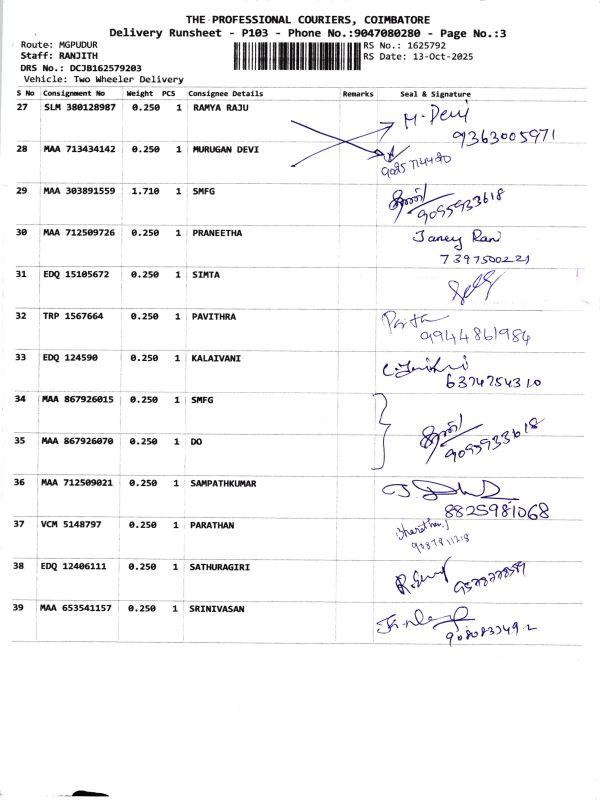 THE PROFESSIONAL COURIERS, COIMBATORE
Delivery Runsheet - P103 - Phone No.:9047080280 - Page No.:3
Route: MGPUDUR RS No.: 1625792
Staff: RANJITH RS Date: 13-Oct-2025
DRS No.: DCJB162579203
Vehicle: Two Wheeler Delivery
S No Consignment No Weight PCS Consignee Details Remarks Seal & Signature
27 SLM 380128987 0.250 1 RAMYA RAJU M. Devi
9363005971
28 MAA 713434142 0.250 1 MURUGAN DEVI
29 MAA 303891559 1.710 1 SMFG
9095933618
30 MAA 712509726 0.250 1 PRANEETHA Janey Rani
7397500221
31 EDQ 15105672 0.250 1 SIMTA
32 TRP 1567664 0.250 1 PAVITHRA
9944861984
33 EDQ 124590 0.250 1 KALAIVANI
6374754310
34 MAA 867926015 0.250 1 SMFG
35 MAA 867926070 0.250 1 DO
9095933618
36 MAA 712509021 0.250 1 SAMPATHKUMAR
8825981068
37 VCM 5148797 0.250 1 PARATHAN
38 EDQ 12406111 0.250 1 SATHURAGIRI
39 MAA 653541157 0.250 1 SRINIVASAN